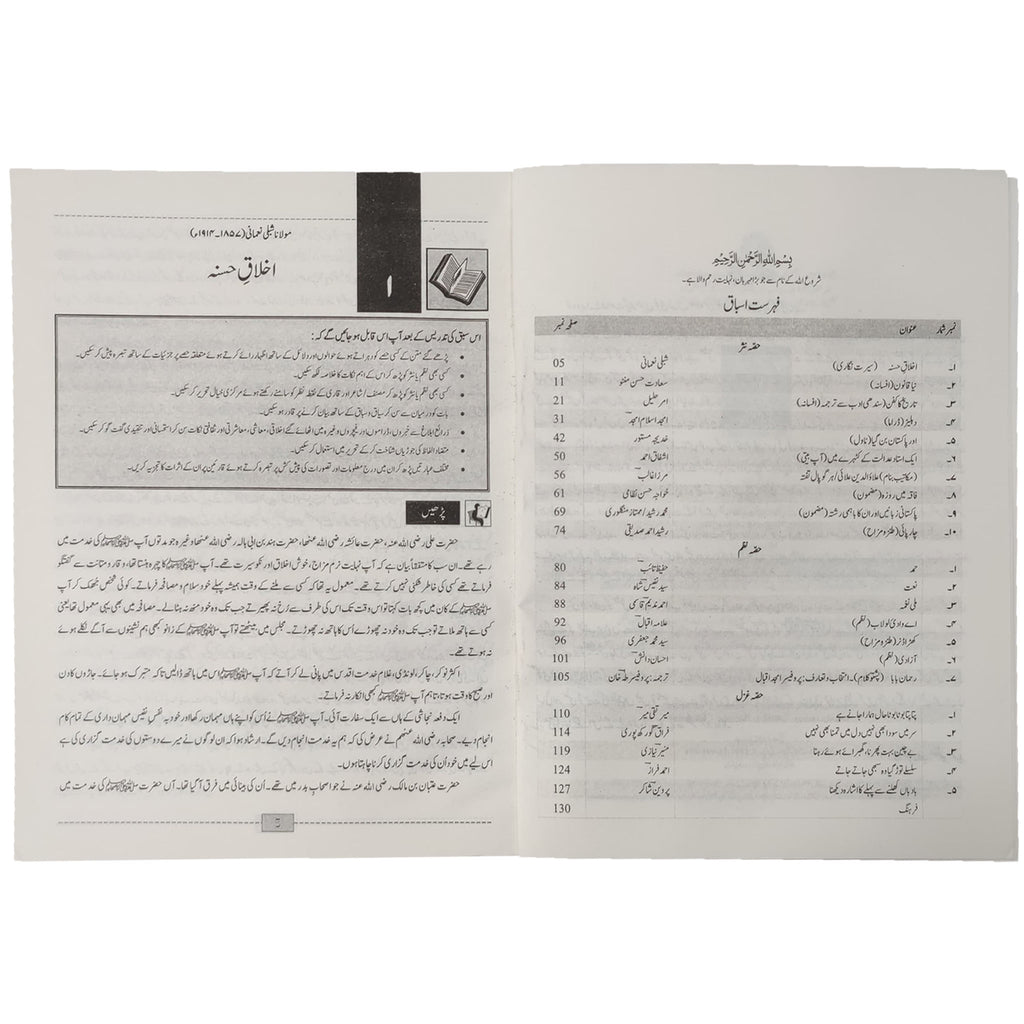 بِسْمِ اللهِ الرَّحْمٰنِ الرَّحِيْمِ
شروع اللہ کے نام سے جو بڑا مہربان، نہایت رحم والا ہے۔
فہرست اسباق
نمبر شمار عنوان صفحہ نمبر
حصّہ نثر
۱۔ اخلاقِ حسنہ (سیرت نگاری) شبلی نعمانی 05
۲۔ نیا قانون (افسانہ) سعادت حسن منٹو 11
۳۔ تاریخ کا کفن (سندھی ادب سے ترجمہ) (افسانہ) امر جلیل 21
۴۔ دہلیز (ڈراما) امجد اسلام امجد 31
۵۔ اور پاکستان بن گیا (ناول) خدیجہ مستور 42
۶۔ ایک استاد عدالت کے کٹہرے میں (آپ بیتی) اشفاق احمد 50
۷۔ (مکاتیب بنام) علاؤالدین علائی/ ہر گوپال تفتہ مرزا غالبؔ 56
۸۔ فاقہ میں روزہ (مضمون) خواجہ حسن نظامی 61
۹۔ پاکستانی زبانیں اور ان کا باہمی رشتہ (مضمون) محمد رشید/ ممتاز منگلوری 69
۱۰۔ چارپائی (طنز و مزاح) رشید احمد صدیقی 74
حصّہ نظم
۱۔ حمد حفیظ تائبؔ 80
۲۔ نعت سید نفیس شاہ 84
۳۔ ملی نغمہ احمد ندیم قاسمی 88
۴۔ اے وادیِ لولاب (نظم) علامہ اقبالؔ 92
۵۔ کھڑا ڈنر (طنز و مزاح) سید محمد جعفری 96
۶۔ آزادی (نظم) احسان دانشؔ 101
۷۔ رحمان بابا (پشتو کلام)۔ انتخاب و تعارف: پروفیسر امجد اقبال ترجمہ: پروفیسر طہٰ خان 105
حصّہ غزل
۱۔ پتا پتا بوٹا بوٹا حال ہمارا جانے ہے میر تقی میرؔ 110
۲۔ سر میں سودا بھی نہیں دل میں تمنا بھی نہیں فراق گورکھ پوری 114
۳۔ بے چین بہت پھرنا، گھبرائے ہوئے رہنا منیر نیازی 119
۴۔ سلسلے توڑ گیا وہ سبھی جاتے جاتے احمد فرازؔ 124
۵۔ بادباں کھلنے سے پہلے کا اشارہ دیکھنا پروین شاکر 127
فرہنگ 130
۱
مولانا شبلی نعمانی (۱۸۵۷۔۱۹۱۴ء)
اخلاقِ حسنہ
اس سبق کی تدریس کے بعد آپ اس قابل ہو جائیں گے کہ:
• پڑھے گئے متن کے کسی حصے کو دہراتے ہوئے حوالوں اور دلائل کے ساتھ اظہار رائے کرتے ہوئے متعلقہ حصے پر جزئیات کے ساتھ تبصرہ پیش کر سکیں۔
• کسی بھی نظم یا نثر کو پڑھ کر اس کے اہم نکات کا خلاصہ لکھ سکیں۔
• کسی بھی نظم یا نثر کو پڑھ کر مصنف/ شاعر اور قاری کے نقطۂ نظر کو سامنے رکھتے ہوئے مرکزی خیال تحریر کر سکیں۔
• بات کو درمیان سے سن کر سیاق و سباق کے ساتھ بیان کرنے پر قادر ہو سکیں۔
• ذرائع ابلاغ سے خبروں، ڈراموں اور فیچروں وغیرہ میں اٹھائے گئے اخلاقی، معاشی، معاشرتی اور ثقافتی نکات سن کر استحسانی اور تنقیدی گفت گو کر سکیں۔
• متضاد الفاظ کی جوڑیاں شناخت کر کے تحریر میں استعمال کر سکیں۔
• مختلف عبارتیں پڑھ کر ان میں درج معلومات اور تصورات کی پیش کش پر تبصرہ کرتے ہوئے قارئین پر ان کے اثرات کا تجزیہ کریں۔
پڑھیں
حضرت علی رضی اللہ عنہ، حضرت عائشہ رضی اللہ عنھا، حضرت ہند بن ابی ہالہ رضی اللہ عنھا وغیرہ جو مدتوں آپ ﷺ کی خدمت میں
رہے تھے۔ ان سب کا متفقاً بیان ہے کہ آپ نہایت نرم مزاج، خوش اخلاق اور نکو سیرت تھے۔ آپ ﷺ کا چہرہ ہنستا تھا، وقار و متانت سے گفتگو
فرماتے تھے کسی کی خاطر شکنی نہیں کرتے تھے۔ معمول یہ تھا کہ کسی سے ملنے کے وقت ہمیشہ پہلے خود سلام و مصافحہ فرماتے۔ کوئی شخص جھک کر آپ
ﷺ کے کان میں کچھ بات کہتا تو اس وقت تک اس کی طرف سے رُخ نہ پھیرتے جب تک وہ خود منھ نہ ہٹا لے۔ مصافحہ میں بھی یہی معمول تھا یعنی
کسی سے ہاتھ ملاتے تو جب تک وہ خود نہ چھوڑے اُس کا ہاتھ نہ چھوڑتے۔ مجلس میں بیٹھتے تو آپ ﷺ کے زانو کبھی ہم نشینوں سے آگے نکلے ہوئے
نہ ہوتے تھے۔
اکثر نوکر، چاکر، لونڈی، غلام خدمت اقدس میں پانی لے کر آتے کہ آپ ﷺ اس میں ہاتھ ڈالیں تاکہ متبرک ہو جائے۔ جاڑوں کا دن
اور صبح کا وقت ہوتا، تاہم آپ ﷺ کبھی انکار نہ فرماتے۔
ایک دفعہ نجاشی کے ہاں سے ایک سفارت آئی۔ آپ ﷺ نے اُس کو اپنے ہاں مہمان رکھا اور خود بہ نفسِ نفیس مہمان داری کے تمام کام
انجام دیے۔ صحابہ رضی اللہ عنھم نے عرض کی کہ ہم یہ خدمت انجام دیں گے۔ ارشاد ہوا کہ ان لوگوں نے میرے دوستوں کی خدمت گزاری کی ہے
اس لیے میں خود اُن کی خدمت گزاری کرنا چاہتا ہوں۔
حضرت عتبان بن مالک رضی اللہ عنہ نے جو اصحابِ بدر میں تھے۔ اُن کی بینائی میں فرق آ گیا تھا۔ آں حضرت ﷺ کی خدمت میں